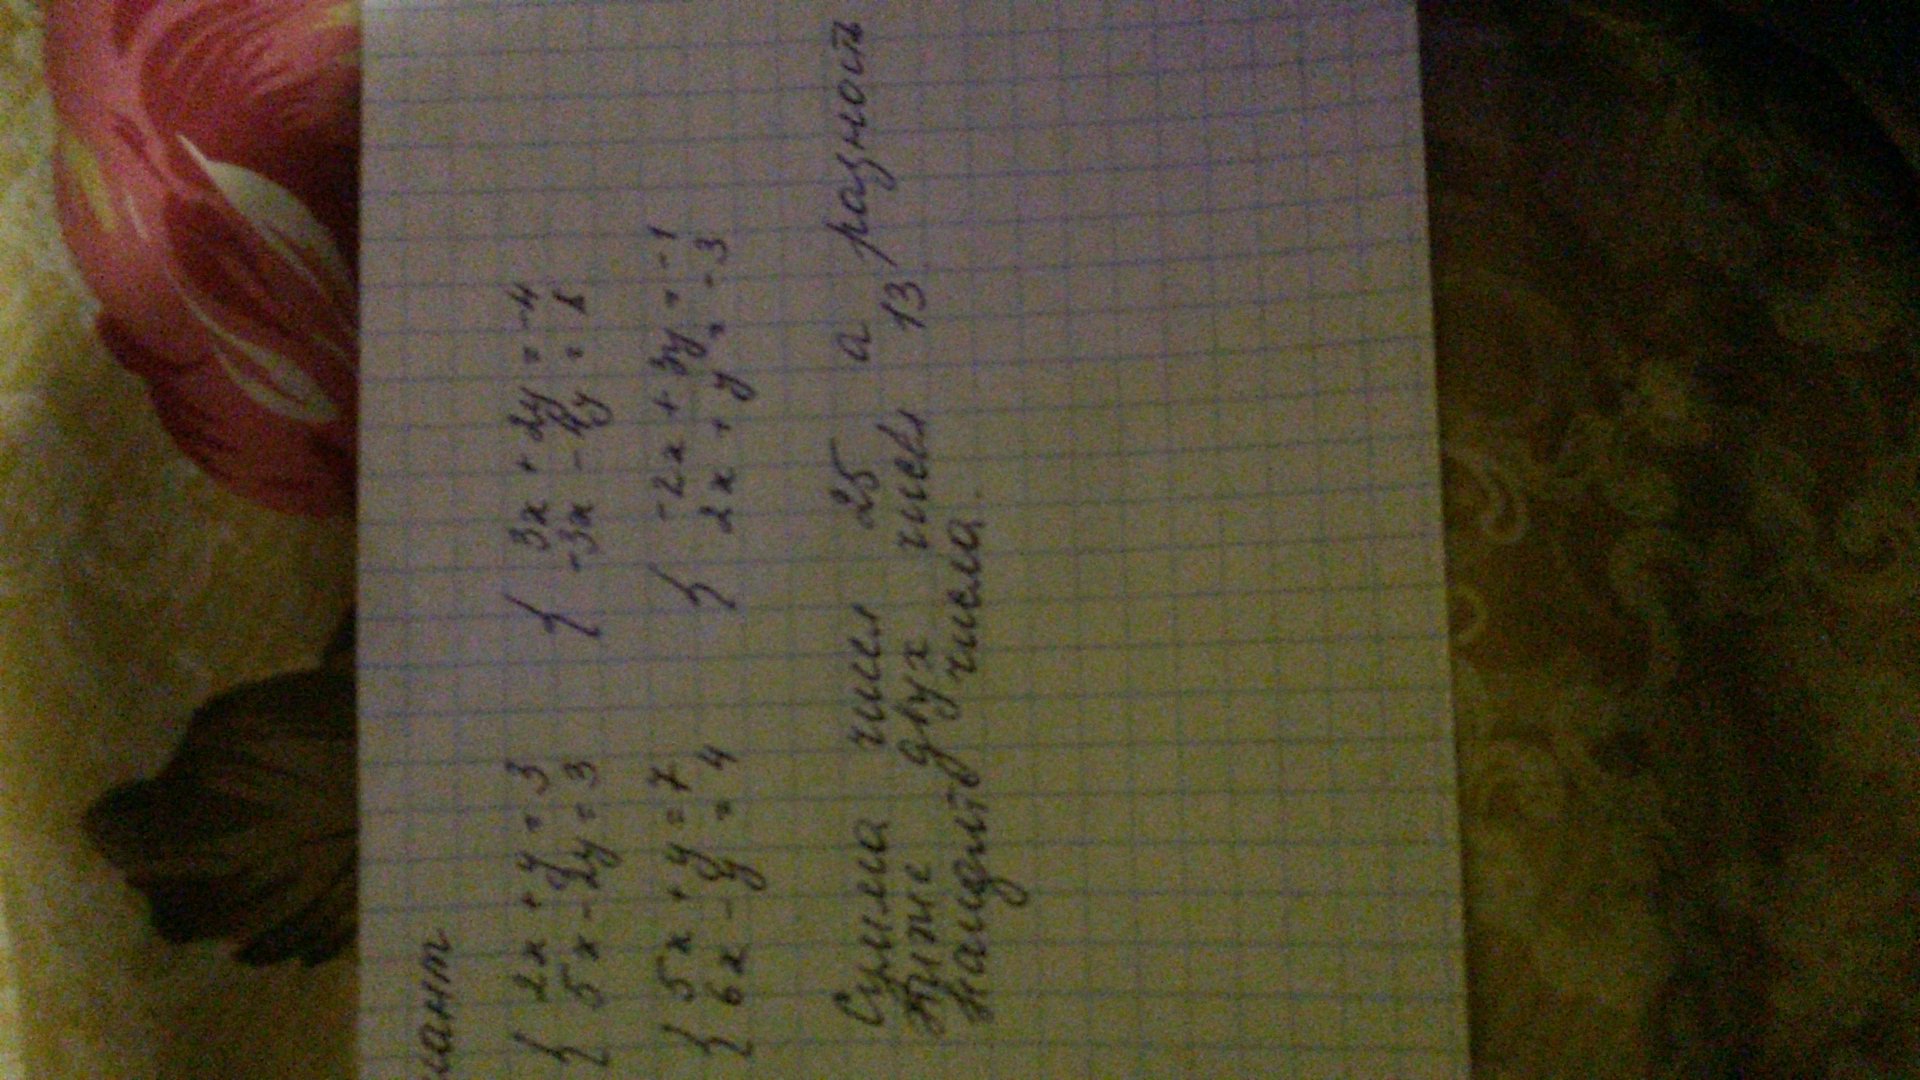 иант
{ 2x + y = 3 { 3x + 2y = -4
5x - 2y = 3 -3x - 4y = 8
{ 5x + y = 7 { -2x + 3y = -1
6x - y = 4 2x + y = -3
Сумма чисел 25 а разность
двух чисел 13
найдите числа.